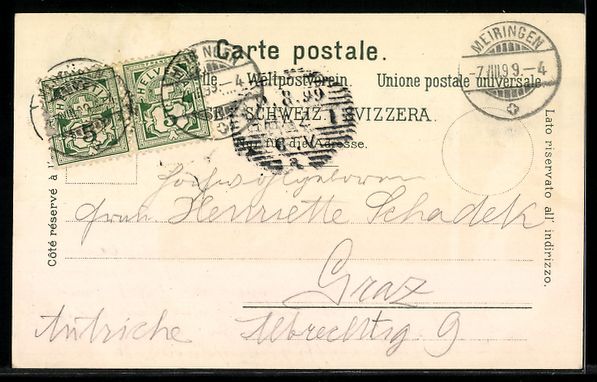 Carte postale.
Weltpostverein. Unione postale universale.
SCHWEIZ. SVIZZERA.
für die Adresse.
Côté réservé à l'
Lato riservato all' indirizzo.
MEIRINGEN
-7.VIII.99.-4
HELVETIA
5
HELVETIA
5
8.99
Hochwohlgeboren
Frau Henriette Schadek
Graz
Autriche Albrechtsg 9